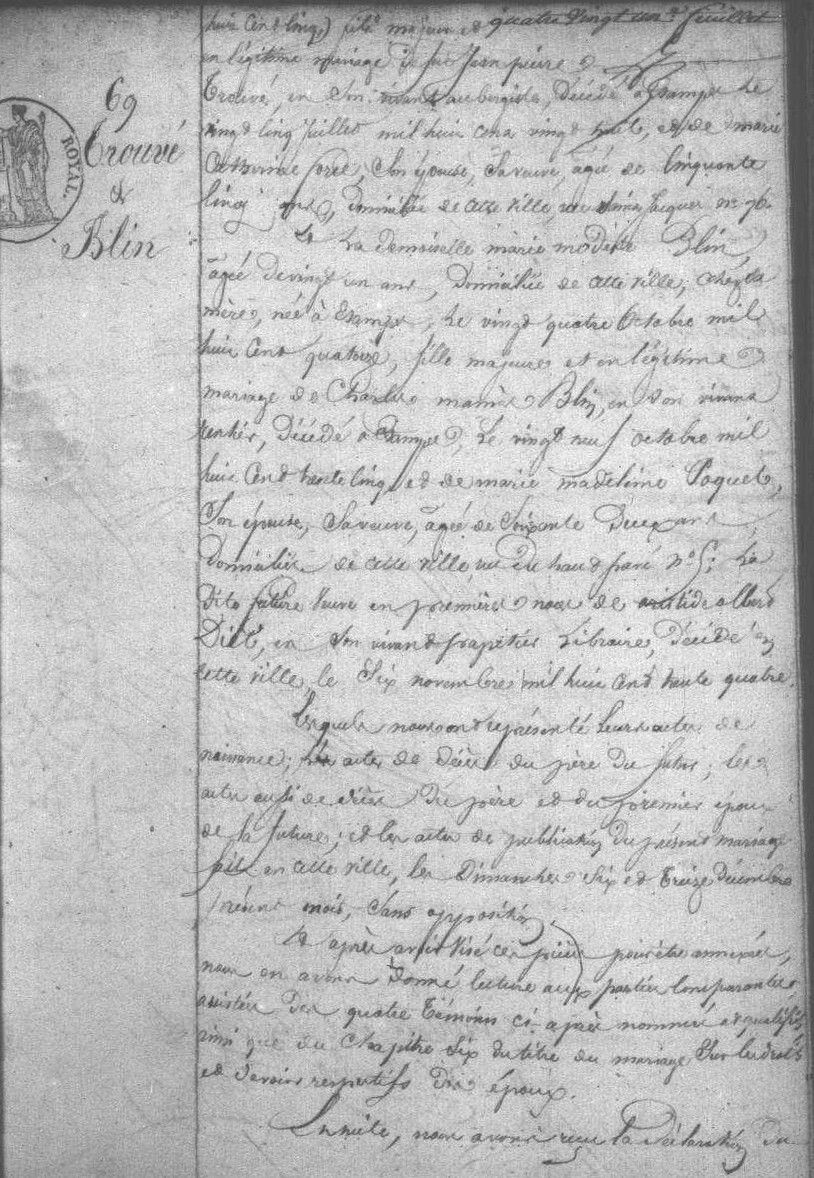 69
Trouvé
&
Blin
ROYAL.
huit cent cinq, fils majeur et quatre vingt un feuillet
en légitime mariage de feu Jean pierre
Trouvé, en son vivant aubergiste, Décédé à Etampes Le
vingt cinq juillet mil huit cent vingt huit, et de marie
Catherine Son épouse, Sa veuve, agée de Cinquante
cinq ans, Domiciliée de cette ville, rue Saint Jacques n° 76.
Et La demoiselle marie modeste Blin,
agée de vingt un ans, Domiciliée de cette ville, chez sa
mère, née à Etampes, Le vingt quatre Octobre mil
huit cent quatorze, fille majeure et en légitime
mariage de Charles Blin, en son vivant
rentier, Décédé à Etampes, Le vingt neuf octobre mil
huit cent trente cinq, et de marie madeleine Paquet,
Son épouse, Sa veuve, agée de Soixante Deux ans
Domiciliée de cette ville rue Du haut pavé N° ; La
Dite future Veuve en premières noces de aristide
en Son vivant papetier Libraire, Décédé en
cette ville, le Six novembre mil huit cent trente quatre.
Lesquels nous ont représenté Leurs actes de
naissance; les actes de Décès du père Du futur; les
actes aussi de décès Du père et du premier époux
de la future; et les actes de publication Du présent mariage
faits en cette ville, les Dimanches Six et Treize Décembre
présent mois, Sans opposition.
Et après avoir visé ces pièces pour être annexées,
nous en avons donné lecture aux parties Comparantes
assistées Des quatre Témoins ci-après nommés et qualifiés,
ainsi que du Chapitre Six du titre du mariage Sur les droits
et devoirs respectifs Des époux.
Ensuite, nous avons reçu la Déclaration Du